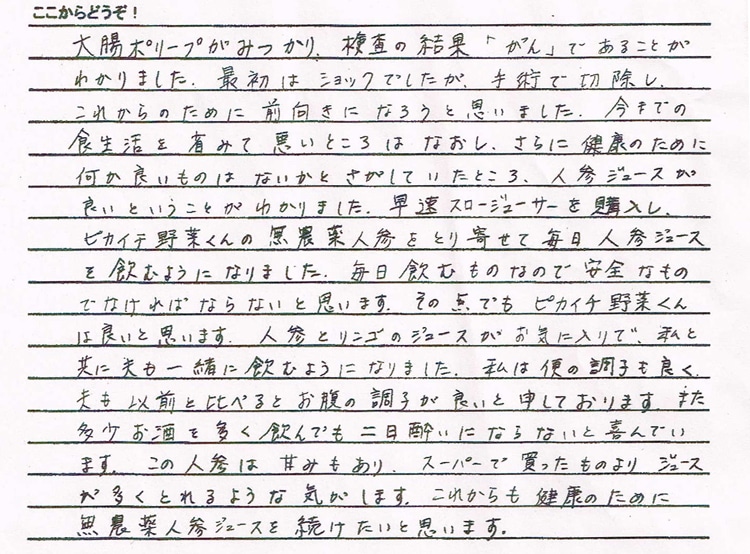 ここからどうぞ！
大腸ポリープがみつかり、検査の結果「がん」であることが
わかりました。最初はショックでしたが、手術で切除し、
これからのために前向きになろうと思いました。今までの
食生活を省みて悪いところはなおし、さらに健康のために
何か良いものはないかとさがしていたところ、人参ジュースが
良いということがわかりました。早速スロージューサーを購入し、
ピカイチ野菜くんの無農薬人参をとり寄せて毎日人参ジュース
を飲むようになりました。毎日飲むものなので安全なもの
でなければならないと思います。その点でもピカイチ野菜くん
は良いと思います。人参とリンゴのジュースがお気に入りで、私と
共に夫も一緒に飲むようになりました。私は便の調子も良く、
夫も以前と比べるとお腹の調子が良いと申しております。また
多少お酒を多く飲んでも二日酔いにならないと喜んでい
ます。この人参は甘みもあり、スーパーで買ったものよりジュース
が多くとれるような気がします。これからも健康のために
無農薬人参ジュースを続けたいと思います。